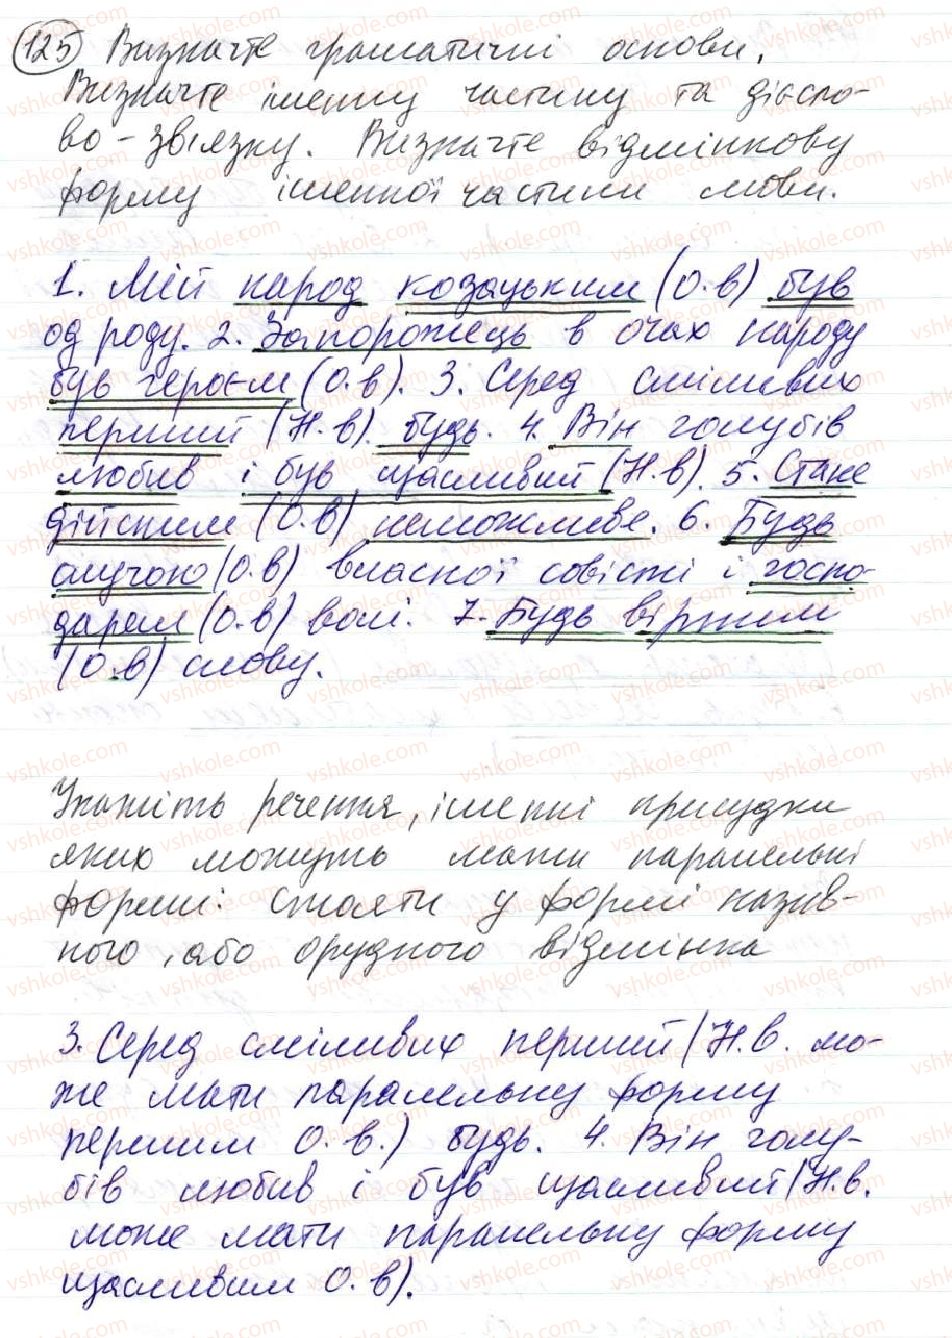 125 Визначте граматичні основи.
Визначте іменну частину та дієсло-
во-зв'язку. Визначте відмінкову
форму іменної частини мови.
1. Мій народ козацьким (О.в) був
од роду. 2. Запорожець в очах народу
був героєм (О.в). 3. Серед сміливих
перший (Н.в). будь. 4. Він голубів
любив і був щасливий (Н.в). 5. Стане
дійсним (О.в) неможливе. 6. Будь
слугою (О.в) власної совісті і госпо-
дарем (О.в) волі. 7. Будь вірним
(О.в) слову.
Укажіть речення, іменні присудки
яких можуть мати паралельні
форми: стояти у формі назив-
ного, або орудного відмінка
3. Серед сміливих перший (Н.в. мо-
же мати паралельну форму
першим О.в.) будь. 4. Він голу-
бів любив і був щасливий (Н.в.
може мати паралельну форму
щасливим О.в).
vshkole.com